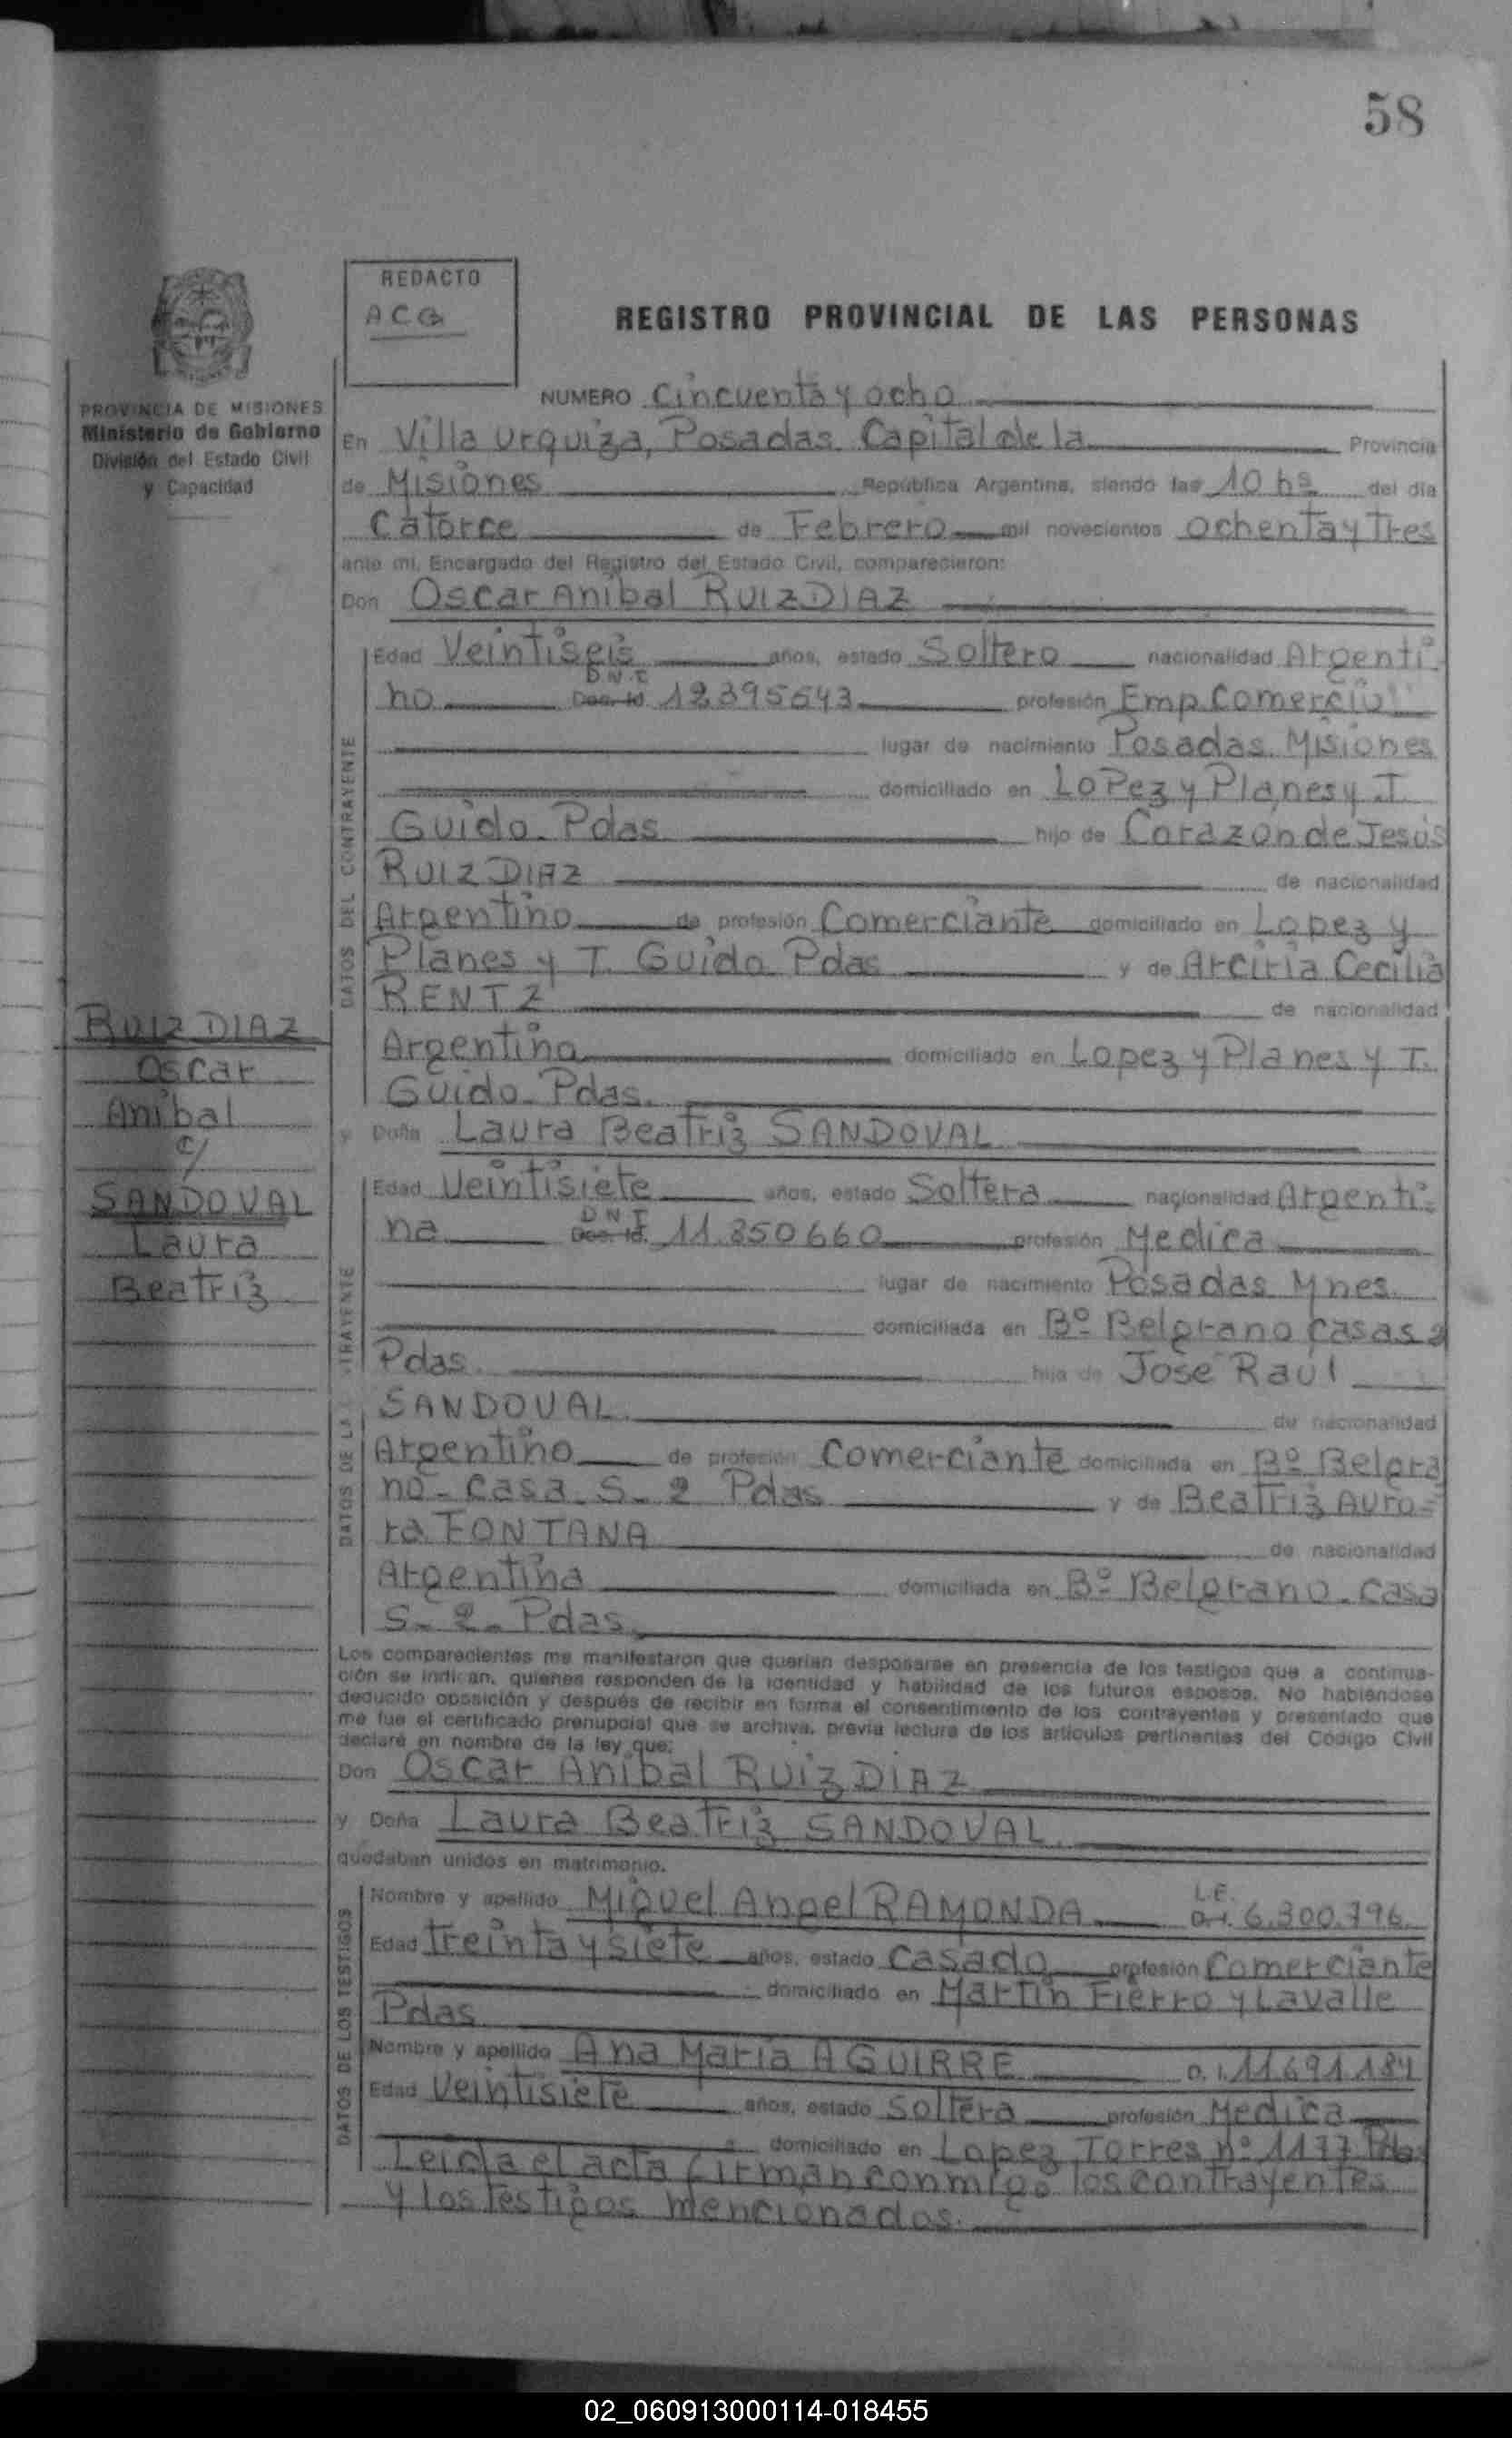 58
REDACTO
ACG
REGISTRO PROVINCIAL DE LAS PERSONAS
PROVINCIA DE MISIONES
Ministerio de Gobierno
División del Estado Civil
y Capacidad
NUMERO Cincuenta y ocho
En Villa Urquiza, Posadas. Capital de la Provincia
de Misiones República Argentina, siendo las 10 hs del día
Catorce de Febrero mil novecientos ochenta y Tres
ante mí, Encargado del Registro del Estado Civil, comparecieron:
Don Oscar Anibal RUIZ DIAZ
DATOS DEL CONTRAYENTE
Edad Veintiseis años, estado Soltero nacionalidad Argenti-
D.N.I
no Doc. Id. 12.395543 profesión Emp. Comercio
lugar de nacimiento Posadas. Misiones
domiciliado en LoPez y Planes y T.
Guido. Pdas hijo de Corazon de Jesús
RUIZ DIAZ de nacionalidad
Argentino de profesión Comerciante domiciliado en Lopez y
Planes y T. Guido. Pdas y de Arciria Cecilia
RENTZ de nacionalidad
Argentina domiciliado en Lopez y Planes y T.
Guido. Pdas.
RUIZ DIAZ
Oscar
Anibal
c/
SANDOVAL
Laura
Beatriz
y Doña Laura Beatriz SANDOVAL
DATOS DE LA CONTRAYENTE
Edad Veintisiete años, estado Soltera nacionalidad Argenti-
D N I
na Doc. Id. 11.350660 profesión Medica
lugar de nacimiento Posadas Mnes.
domiciliada en Bº Belgrano casa s 2
Pdas. hija de José Raul
SANDOVAL. de nacionalidad
Argentino de profesión Comerciante domiciliada en Bº Belgra
no - Casa. S- 2 Pdas y de Beatriz Auro-
ra FONTANA de nacionalidad
Argentina domiciliada en Bº Belgrano. Casa
S- 2- Pdas.
Los comparecientes me manifestaron que querían desposarse en presencia de los testigos que a continua-
ción se indican, quienes responden de la identidad y habilidad de los futuros esposos. No habiéndose
deducido oposición y después de recibir en forma el consentimiento de los contrayentes y presentado que
me fue el certificado prenupcial que se archiva, previa lectura de los artículos pertinentes del Código Civil
declaré en nombre de la ley que:
Don Oscar Anibal Ruiz DIAZ
y Doña Laura Beatriz SANDOVAL.
quedaban unidos en matrimonio.
DATOS DE LOS TESTIGOS
L.E.
Nombre y apellido Miguel Angel RAMONDA D.I. 6.300.796
Edad treinta y siete años, estado casado profesión Comerciante
domiciliado en Martin Fierro y Lavalle
Pdas
Nombre y apellido Ana Maria AGUIRRE D.I. 11691184
Edad Veintisiete años, estado Soltera profesión Medica
domiciliado en Lopez Torres nº 1177 Pdas
Leida el acta firman conmigo los contrayentes
y los testigos mencionados.
02_060913000114-018455